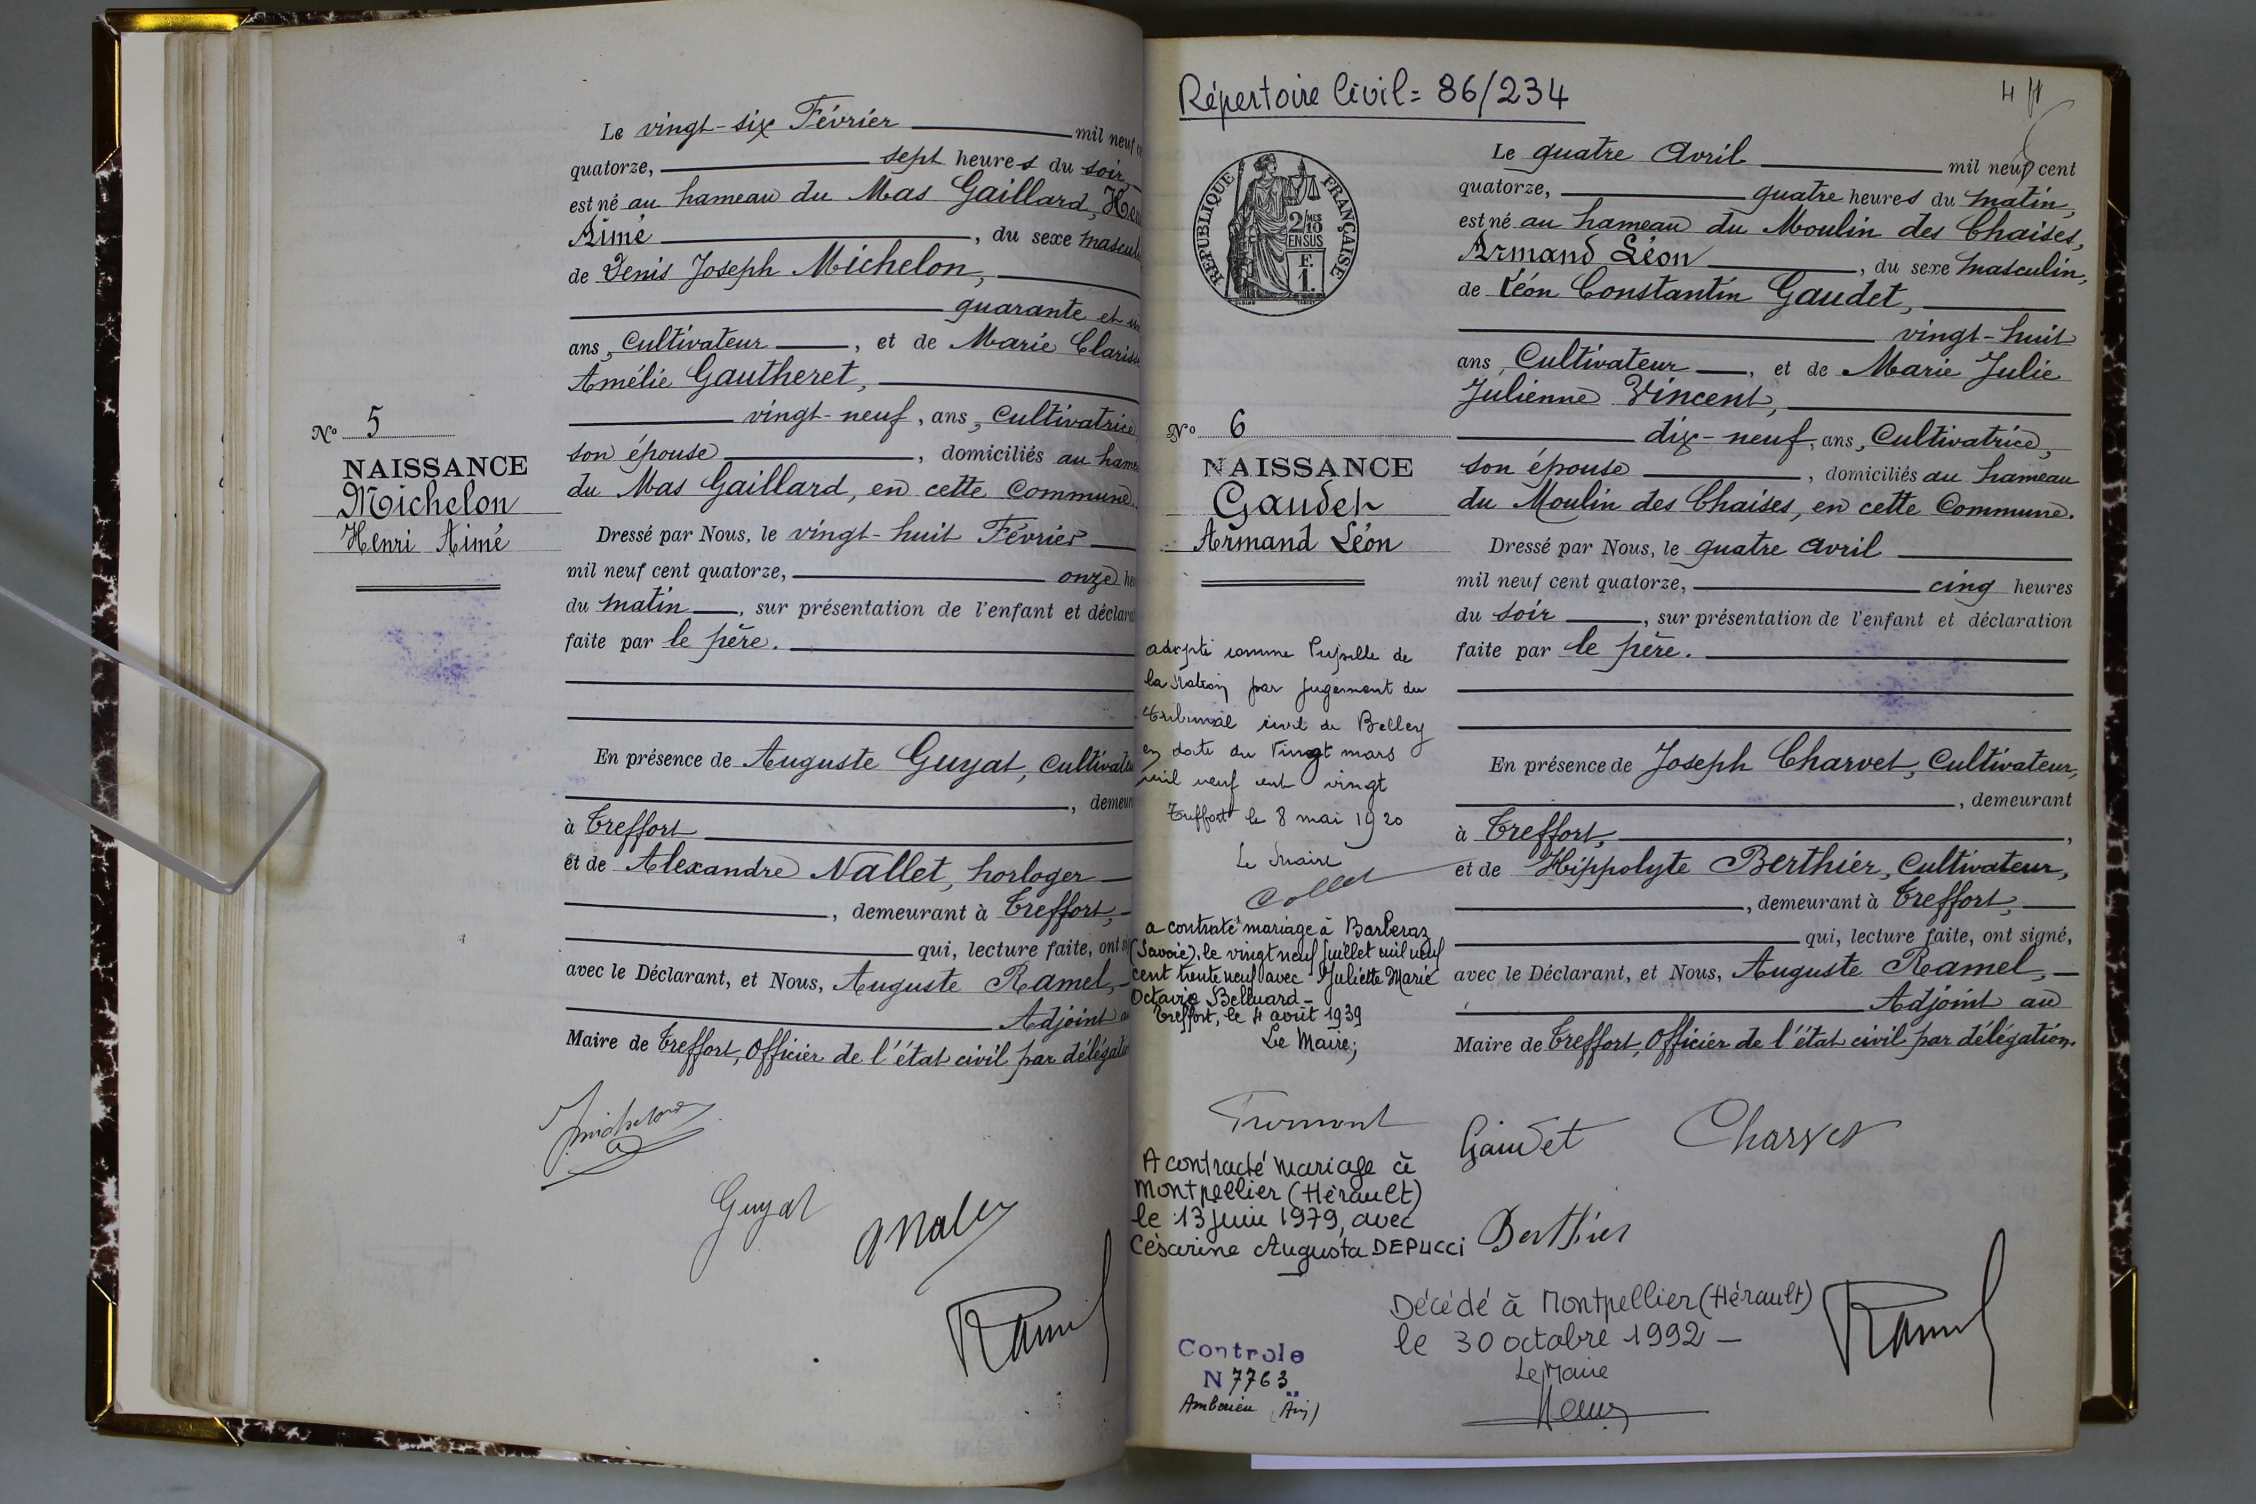 Le vingt-six Février mil neuf
quatorze, sept heures du soir,
est né au hameau du Mas Gaillard,
Aimé, du sexe
de Denis Joseph Michelon,
quarante et
ans, Cultivateur, et de Marie
Amélie Gautheret,
vingt-neuf, ans, Cultivatrice,
son épouse, domiciliés au
du Mas Gaillard, en cette Commune.
Nº 5
NAISSANCE
Michelon
Henri Aimé
Dressé par Nous, le vingt-huit Février
mil neuf cent quatorze, onze
du matin, sur présentation de l'enfant et
faite par le père.
En présence de Auguste Guyat,
à Treffort
et de Alexandre Nallet, horloger
, demeurant à Treffort,
qui, lecture faite, ont
avec le Déclarant, et Nous, Auguste Ramel,
Adjoint
Maire de Treffort, Officier de l'état civil par
Michelon
Guyat
Ramel
Répertoire Civil = 86/234
4
RÉPUBLIQUE FRANÇAISE
2/10 MES
EN SUS
F.
1.
Le quatre Avril mil neuf cent
quatorze, quatre heures du matin,
est né au hameau du Moulin des Chaises,
Armand Léon, du sexe masculin,
de Léon Constantin Gaudet,
vingt-huit
ans, Cultivateur, et de Marie Julie
Julienne Vincent,
dix-neuf, ans, Cultivatrice,
son épouse, domiciliés au hameau
du Moulin des Chaises, en cette Commune.
Nº 6
NAISSANCE
Gaudet
Armand Léon
Dressé par Nous, le quatre Avril
mil neuf cent quatorze, cinq heures
du soir, sur présentation de l'enfant et déclaration
faite par le père.
En présence de Joseph Charvet, Cultivateur,
, demeurant
à Treffort,
et de Hippolyte Berthier, Cultivateur,
, demeurant à Treffort,
qui, lecture faite, ont signé,
avec le Déclarant, et Nous, Auguste Ramel,
Adjoint au
Maire de Treffort, Officier de l'état civil par délégation.
adopté comme Pupille de
la Nation par jugement du
tribunal civil de Belley
en date du Vingt mars
mil neuf cent vingt
Treffort le 8 mai 1920
Le Maire
Collet
a contraté mariage à Barberaz
(Savoie), le vingt neuf Juillet mil neuf
cent trente neuf avec Juliette Marie
Octavie Belluard
Treffort, le 4 août 1939
Le Maire;
A contracté mariage à
Montpellier (Hérault)
le 13 juin 1979, avec
Césarine Augusta DEPUCCI
Gaudet
Charvet
Berthier
Ramel
Décédé à Montpellier (Hérault)
le 30 octobre 1992 –
Le Maire
Controle
N 7763
Amberieu (Ain)